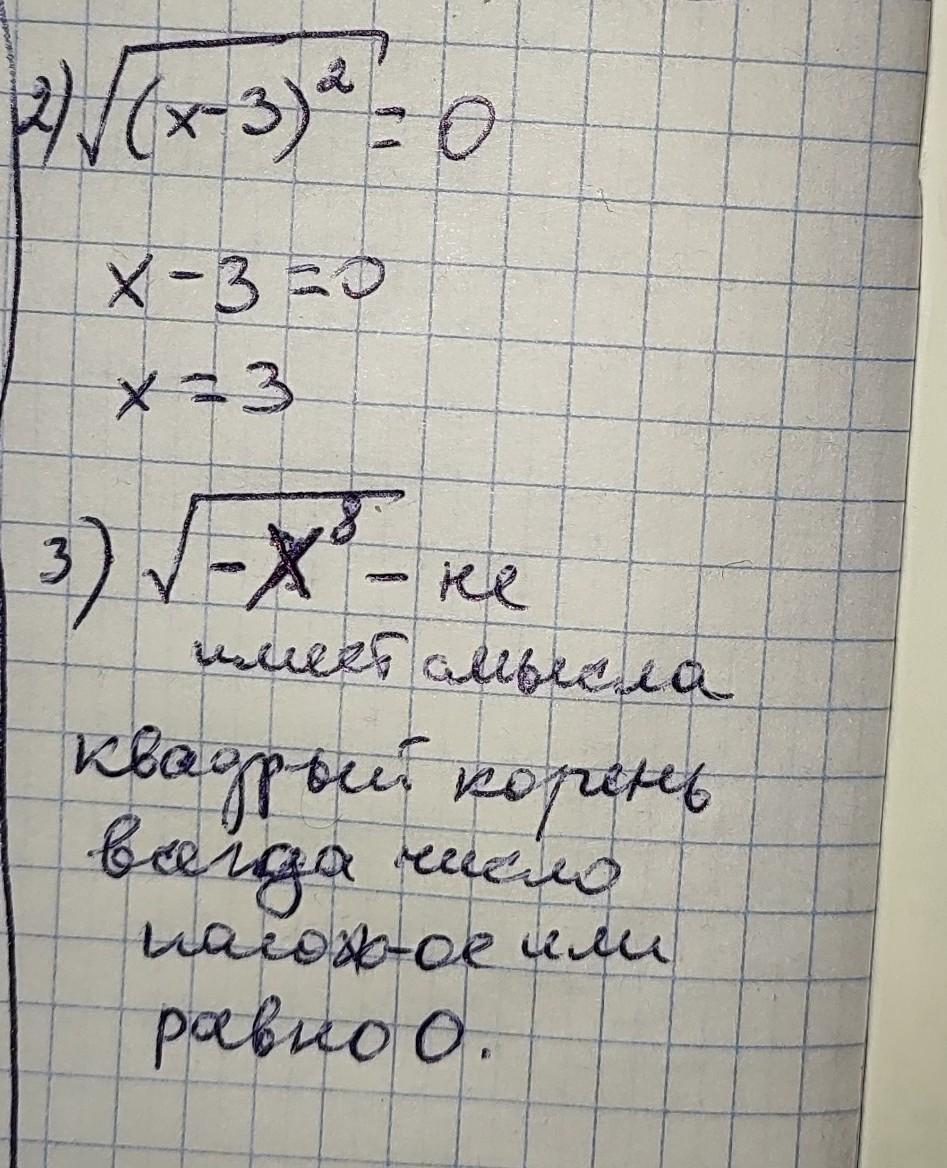 2) √(x-3)² = 0
x - 3 = 0
x = 3
3) √-x⁸ - не
имеет смысла
квадрый корень
всегда число
полож-ое или
равно 0.